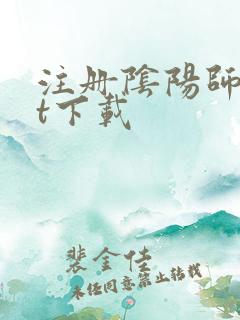 注册陰陽師
t下載
裴金佳
未经同意禁止转载